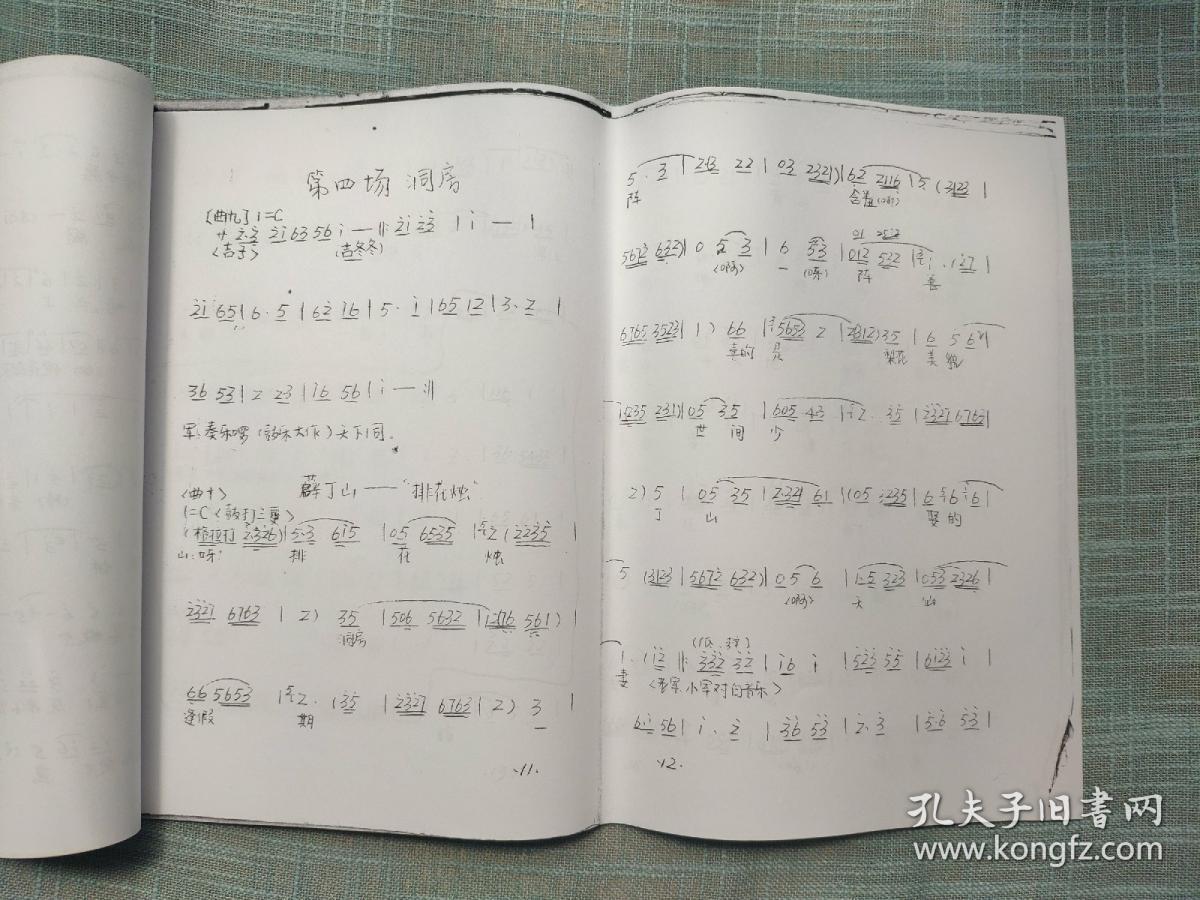 第四场 洞房
〔曲九〕 1=C
サ 2·2 2163 56 1 — ‖: 21 22 | 1 — |
〈吉子〉 (吉冬冬)
21 65 | 6·5 | 62 76 | 5·1 | 65 12 | 3·2 |
36 53 | 2 23 | 76 56 | 1 — :‖
军:奏乐啰(鼓乐大作)天下同。
〈曲十〉 薛丁山——"排花烛"
1=C〈鼓打三更〉
(格拉打 2·326) | 5·3 615 | 05 6535 | 2 (2235 |
山:呀! 排 花 烛
2327 6763 | 2) 35 | 506 5632 | 1276 561) |
洞房
66 5653 | 2· (35 | 2327 6763 | 2) 3 |
逢假 期
·11·
5·3 | 2·3 22 | 03 2321) | 62 2116 | 5 (3123 |
阵
5672 632) | 0 5 3 | 6 53 | 012 532 | 1·(27 |
(啊) (啄) 阵 喜
6765 3523 | 1) 66 | 5653 2 | (2312) 35 | 6 5 6
喜的 是 梨花 美貌
1235 231) | 05 35 | 605 43 | 2· 35 | 2327 6763 |
世 间 少
2) 5 | 05 35 | 2·321 61 | (05 1235 | 6 5 6 1 6 |
丁 山 娶的
5 (3123 | 5672 632) | 05 6 | 1·5 323 | 053 2326 |
(啊) 天 仙
1· (12 ‖: 332 32 | 16 1 | 523 55 | 6123 1 |
妻 小军对白音乐〉
61 56 | 1·2 | 36 53 | 2·3 | 56 53 |
·12·
孔夫子旧书网
www.kongfz.com